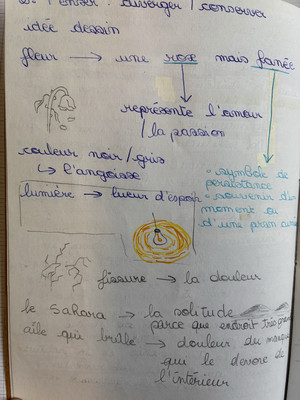 Penser : diverger / conserver
idée dessin
fleur → une rose mais fanée
représente l'amour
/ la passion
couleur noir / gris
↳ l'angoisse
lumière → lueur d'espoir
• symbole de
persistance
• souvenir d'un
moment ou
d'une
fissure → la douleur
le Sahara → la solitude
parce que endroit très grand
aile qui brûle → douleur du manque
qui le dévore de
l'intérieur